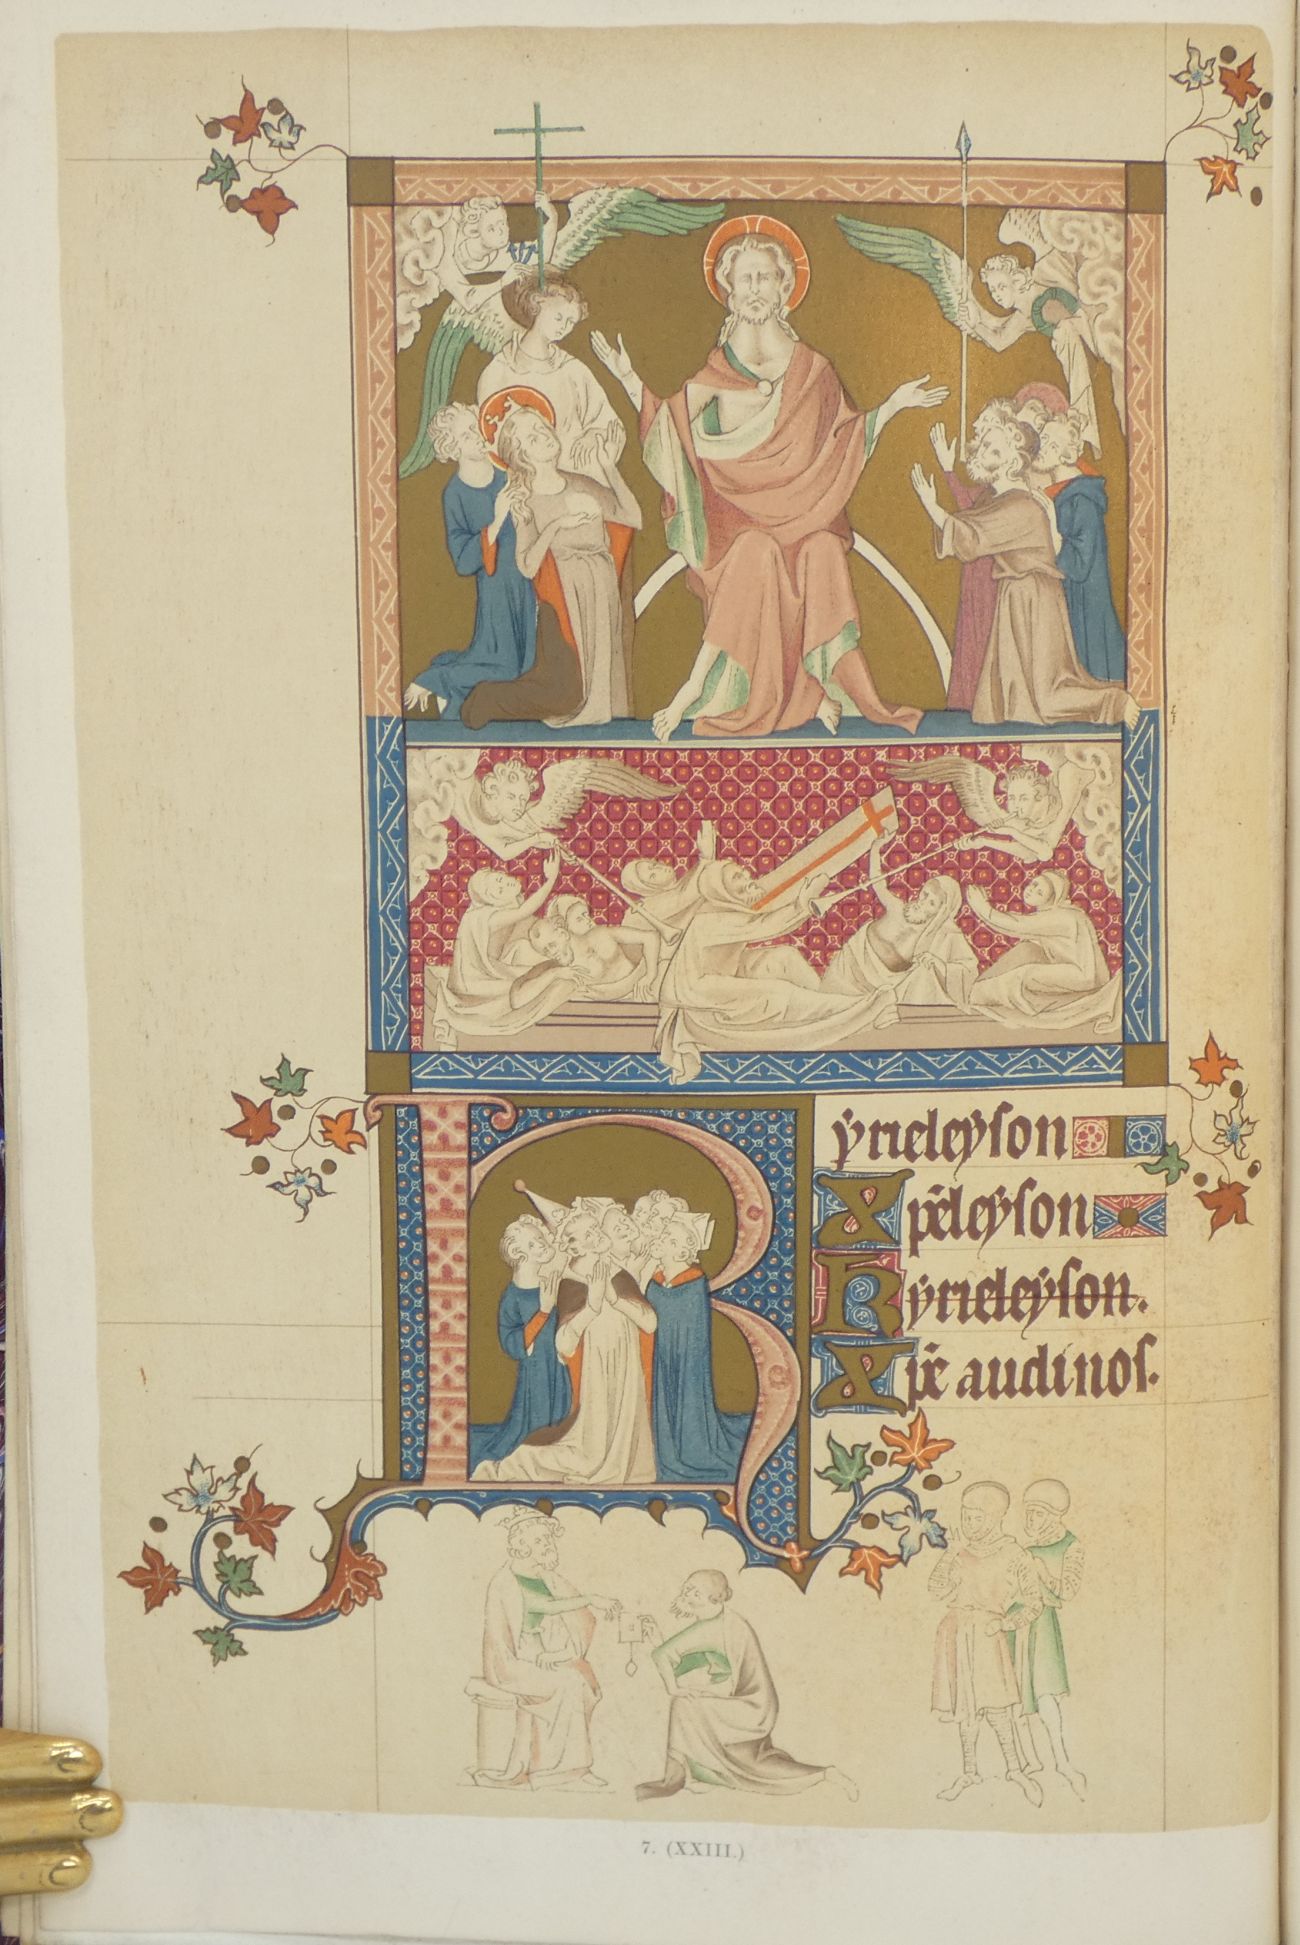 Kẏrieleẏson
Xpēleẏson
Kẏrieleẏson.
Xpē audi nos.
7. (XXIII.)